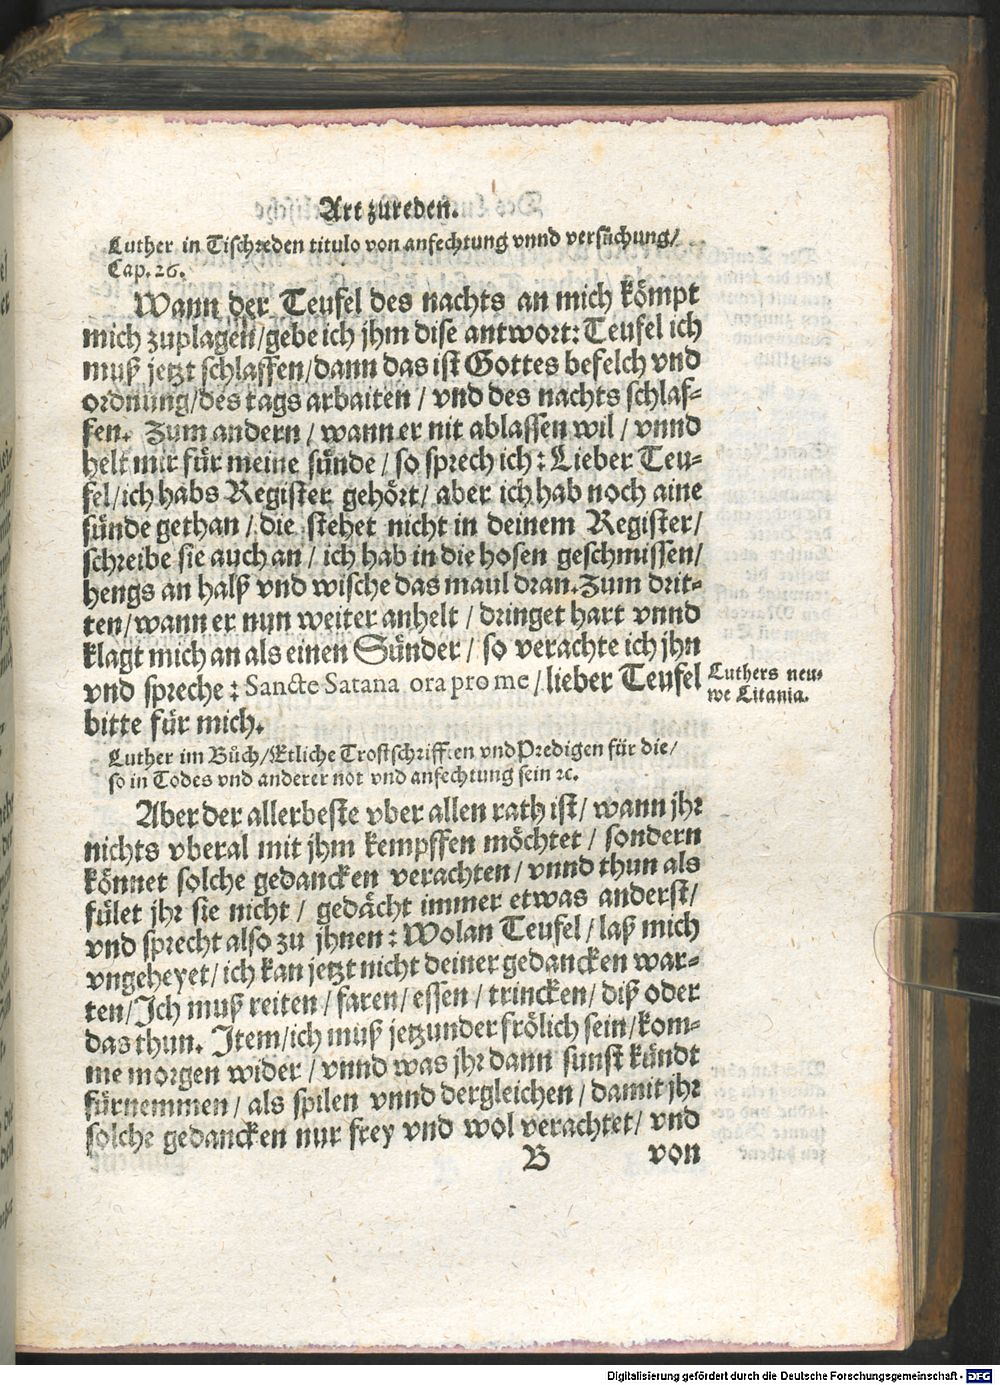 Art zureden.
Luther in Tischreden titulo von anfechtung vnnd versůchung/
Cap. 26.
Wann der Teufel des nachts an mich kömpt
mich zuplagen/gebe ich jhm dise antwort: Teufel ich
muß jetzt schlaffen/dann das ist Gottes befelch vnd
ordnung/des tags arbaiten / vnd des nachts schlaf-
fen. Zum andern / wann er nit ablassen wil / vnnd
helt mir für meine sünde / so sprech ich: Lieber Teu-
fel/ich habs Register gehört/ aber ich hab noch aine
sünde gethan / die stehet nicht in deinem Register/
schreibe sie auch an / ich hab in die hosen geschmissen/
hengs an halß vnd wische das maul dran. Zum drit-
ten/wann er nun weiter anhelt / dringet hart vnnd
klagt mich an als einen Sünder / so verachte ich jhn
vnd spreche: Sancte Satana ora pro me / lieber Teufel
bitte für mich.
Luthers neu-
we Litania.
Luther im Bůch/Etliche Trostschrifften vnd Predigen für die/
so in Todes vnd anderer not vnd anfechtung sein ꝛc.
Aber der allerbeste vber allen rath ist/ wann jhr
nichts vberal mit jhm kempffen möchtet / sondern
könnet solche gedancken verachten/ vnnd thun als
fület jhr sie nicht / gedächt immer etwas anderst/
vnd sprecht also zu jhnen: Wolan Teufel/ laß mich
vngeheyet/ ich kan jetzt nicht deiner gedancken war-
ten/Ich muß reiten / faren/ essen / trincken/ diß oder
das thun. Item/ich muß jetzunder frölich sein/kom-
me morgen wider / vnnd was jhr dann sunst kündt
fürnemmen / als spilen vnnd dergleichen / damit jhr
solche gedancken nur frey vnd wol verachtet/ vnd
B von
Digitalisierung gefördert durch die Deutsche Forschungsgemeinschaft - DFG